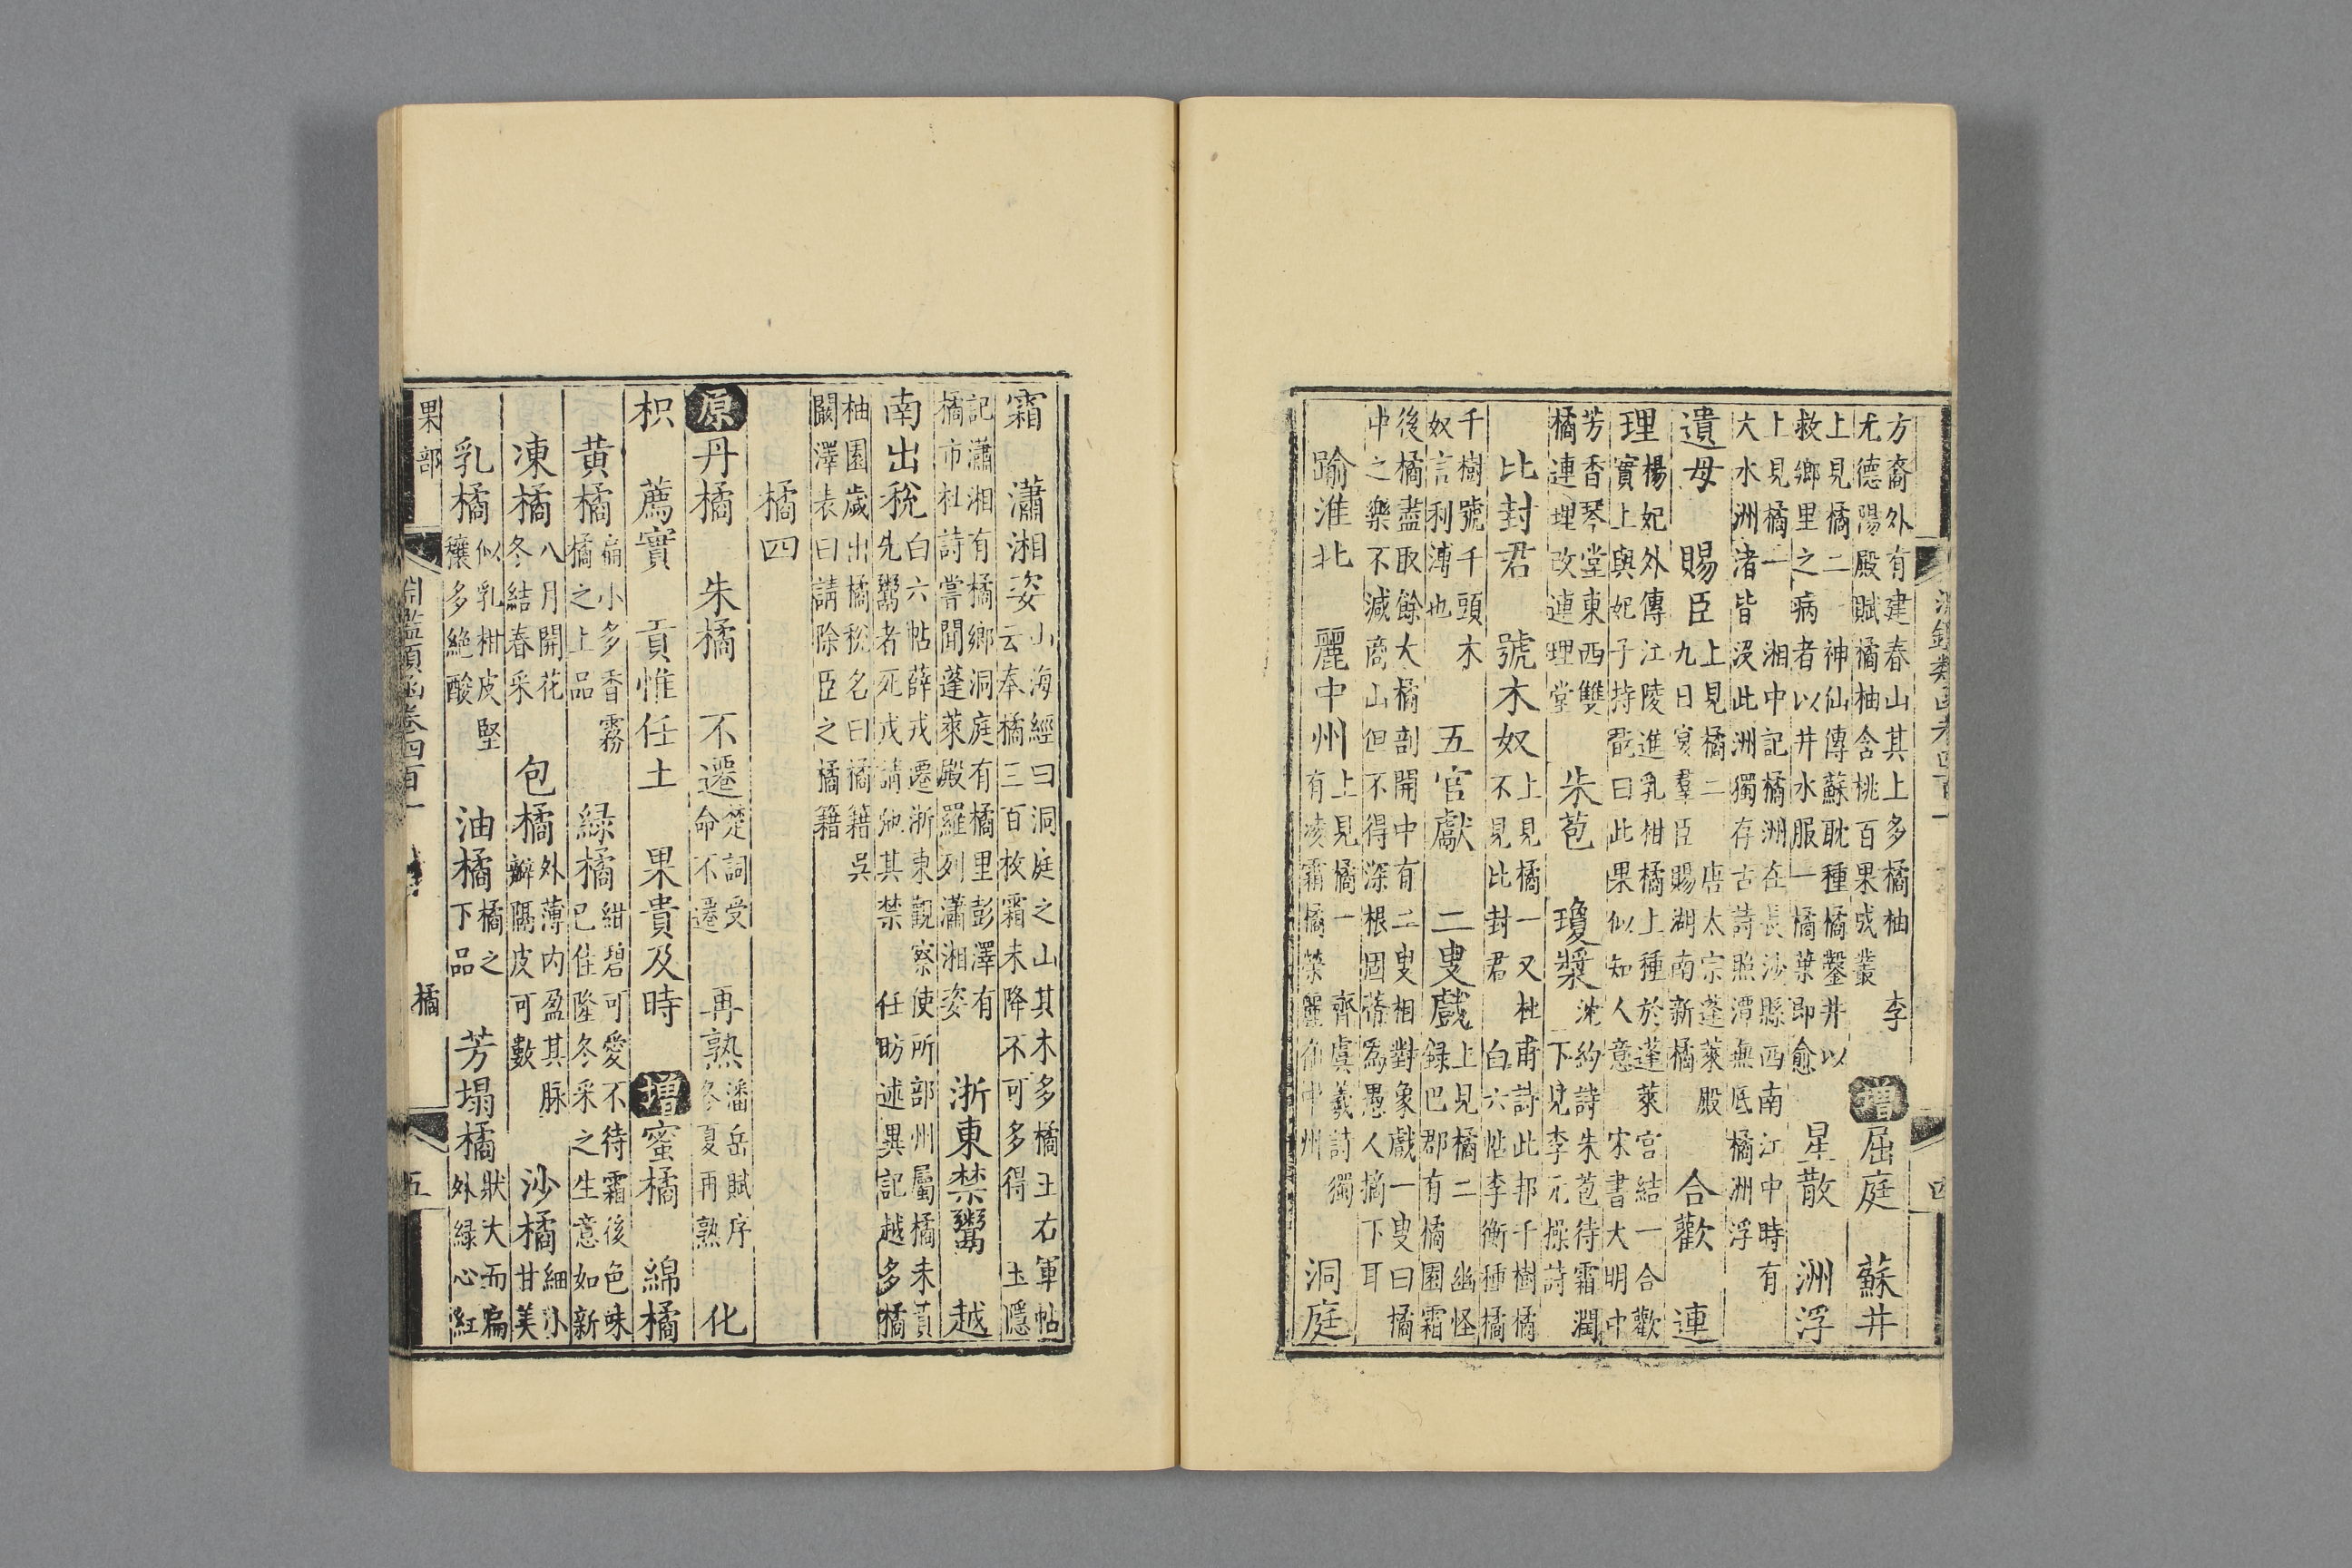 淵鑑類函卷四百一 四
方裔外有建春山其上多橘柚 李尤德陽殿賦橘柚含桃百果成叢 增屈庭 蘇井
上見橘二 神仙傳蘇耽種橘鑿井以救鄉里之病者以井水服一橘葉即愈 星散 洲浮
上見橘一 湘中記橘洲在長沙縣西南江中時有大水洲渚皆沒此洲獨存古詩照潭無底橘洲浮
遺母 賜臣 上見橘二 唐太宗蓬萊殿九日宴羣臣賜湖南新橘 合歡 連
理 楊妃外傳江陵進乳柑橘上種於蓬萊宮結一合歡實上與妃子持翫曰此果似知人意 宋書大明中
芳香琴堂東西雙橘連理改連理堂 朱苞 瓊漿 沈約詩朱苞待霜潤 下見李元操詩
比封君 號木奴 上見橘一又杜甫詩此邦千樹橘不見比封君 白六帖李衡種橘
千樹號千頭木奴言利溥也 五官獻 二叟戲 上見橘二 幽怪錄巴郡有橘園霜
後橘盡取餘大橘剖開中有二叟相對象戲一叟曰橘中之樂不減商山但不得深根固蔕為愚人摘下耳
踰淮北 麗中州 上見橘一 齊虞羲詩獨有凌霜橘榮麗在中州 洞庭
霜 瀟湘姿 山海經曰洞庭之山其木多橘 王右軍帖云奉橘三百枚霜未降不可多得 玉隱
記瀟湘有橘鄉洞庭有橘里彭澤有橘市 杜詩嘗聞蓬萊殿羅列瀟湘姿 浙東禁鬻 越
南出稅 白六帖薛戎遷浙東觀察使所部州屬橘未貢先鬻者死戎請弛其禁 任昉述異記越多橘
柚園歲出橘稅名曰橘籍吳闞澤表曰請除臣之橘籍
橘四
原丹橘 朱橘 不遷 楚詞受命不遷 再熟 潘岳賦序冬夏再熟 化
枳 薦實 貢惟任土 果貴及時 增蜜橘 綿橘
黃橘 扁小多香霧橘之上品 綠橘 紺碧可愛不待霜後色味已佳隆冬采之生意如新
凍橘 八月開花冬結春采 包橘 外薄內盈其脉瓣隔皮可數 沙橘 細小甘美
乳橘 似乳柑皮堅穰多絕酸 油橘 橘之下品 芳塌橘 狀大而扁外綠心紅
果部 淵鑑類函卷四百一 橘 五